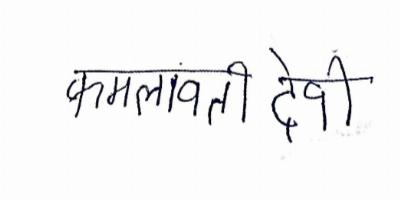 कमलावती देवी